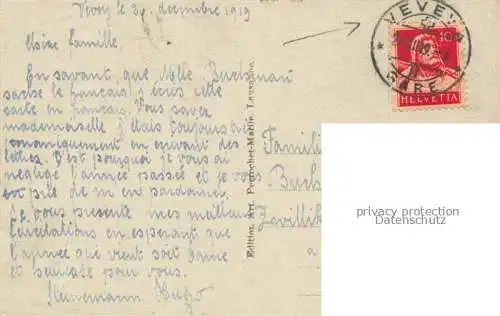 Vevey le 30. decembre 1919
Msire Famille.
En savant que Melle Buchmann
sache le francais j'écris cette
carte en francais. Vous savez
mademoiselle j'étais toujours
en écrivant des
lettres. C'est pourquoi je vous ai
négligé l'annee passée et je vous
prie de m'en pardonner.
Je vous presente mes meilleures
en esperant que
l'annee qui vient soit bonne
et heureuse pour vous.
Heinemann Hugo
Edition Art. Perrochet-Matile, Lausanne
Famili
Buch
a
VEVEY
GARE
10
HELVETIA
privacy protection
Datenschutz